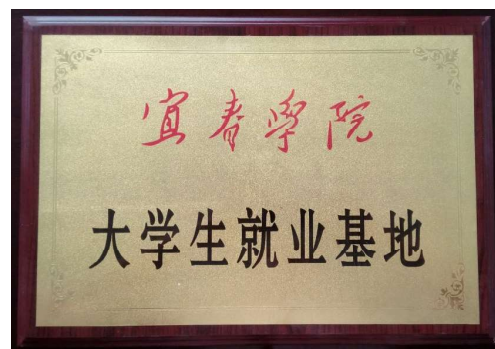 宜春學院
大学生就业基地